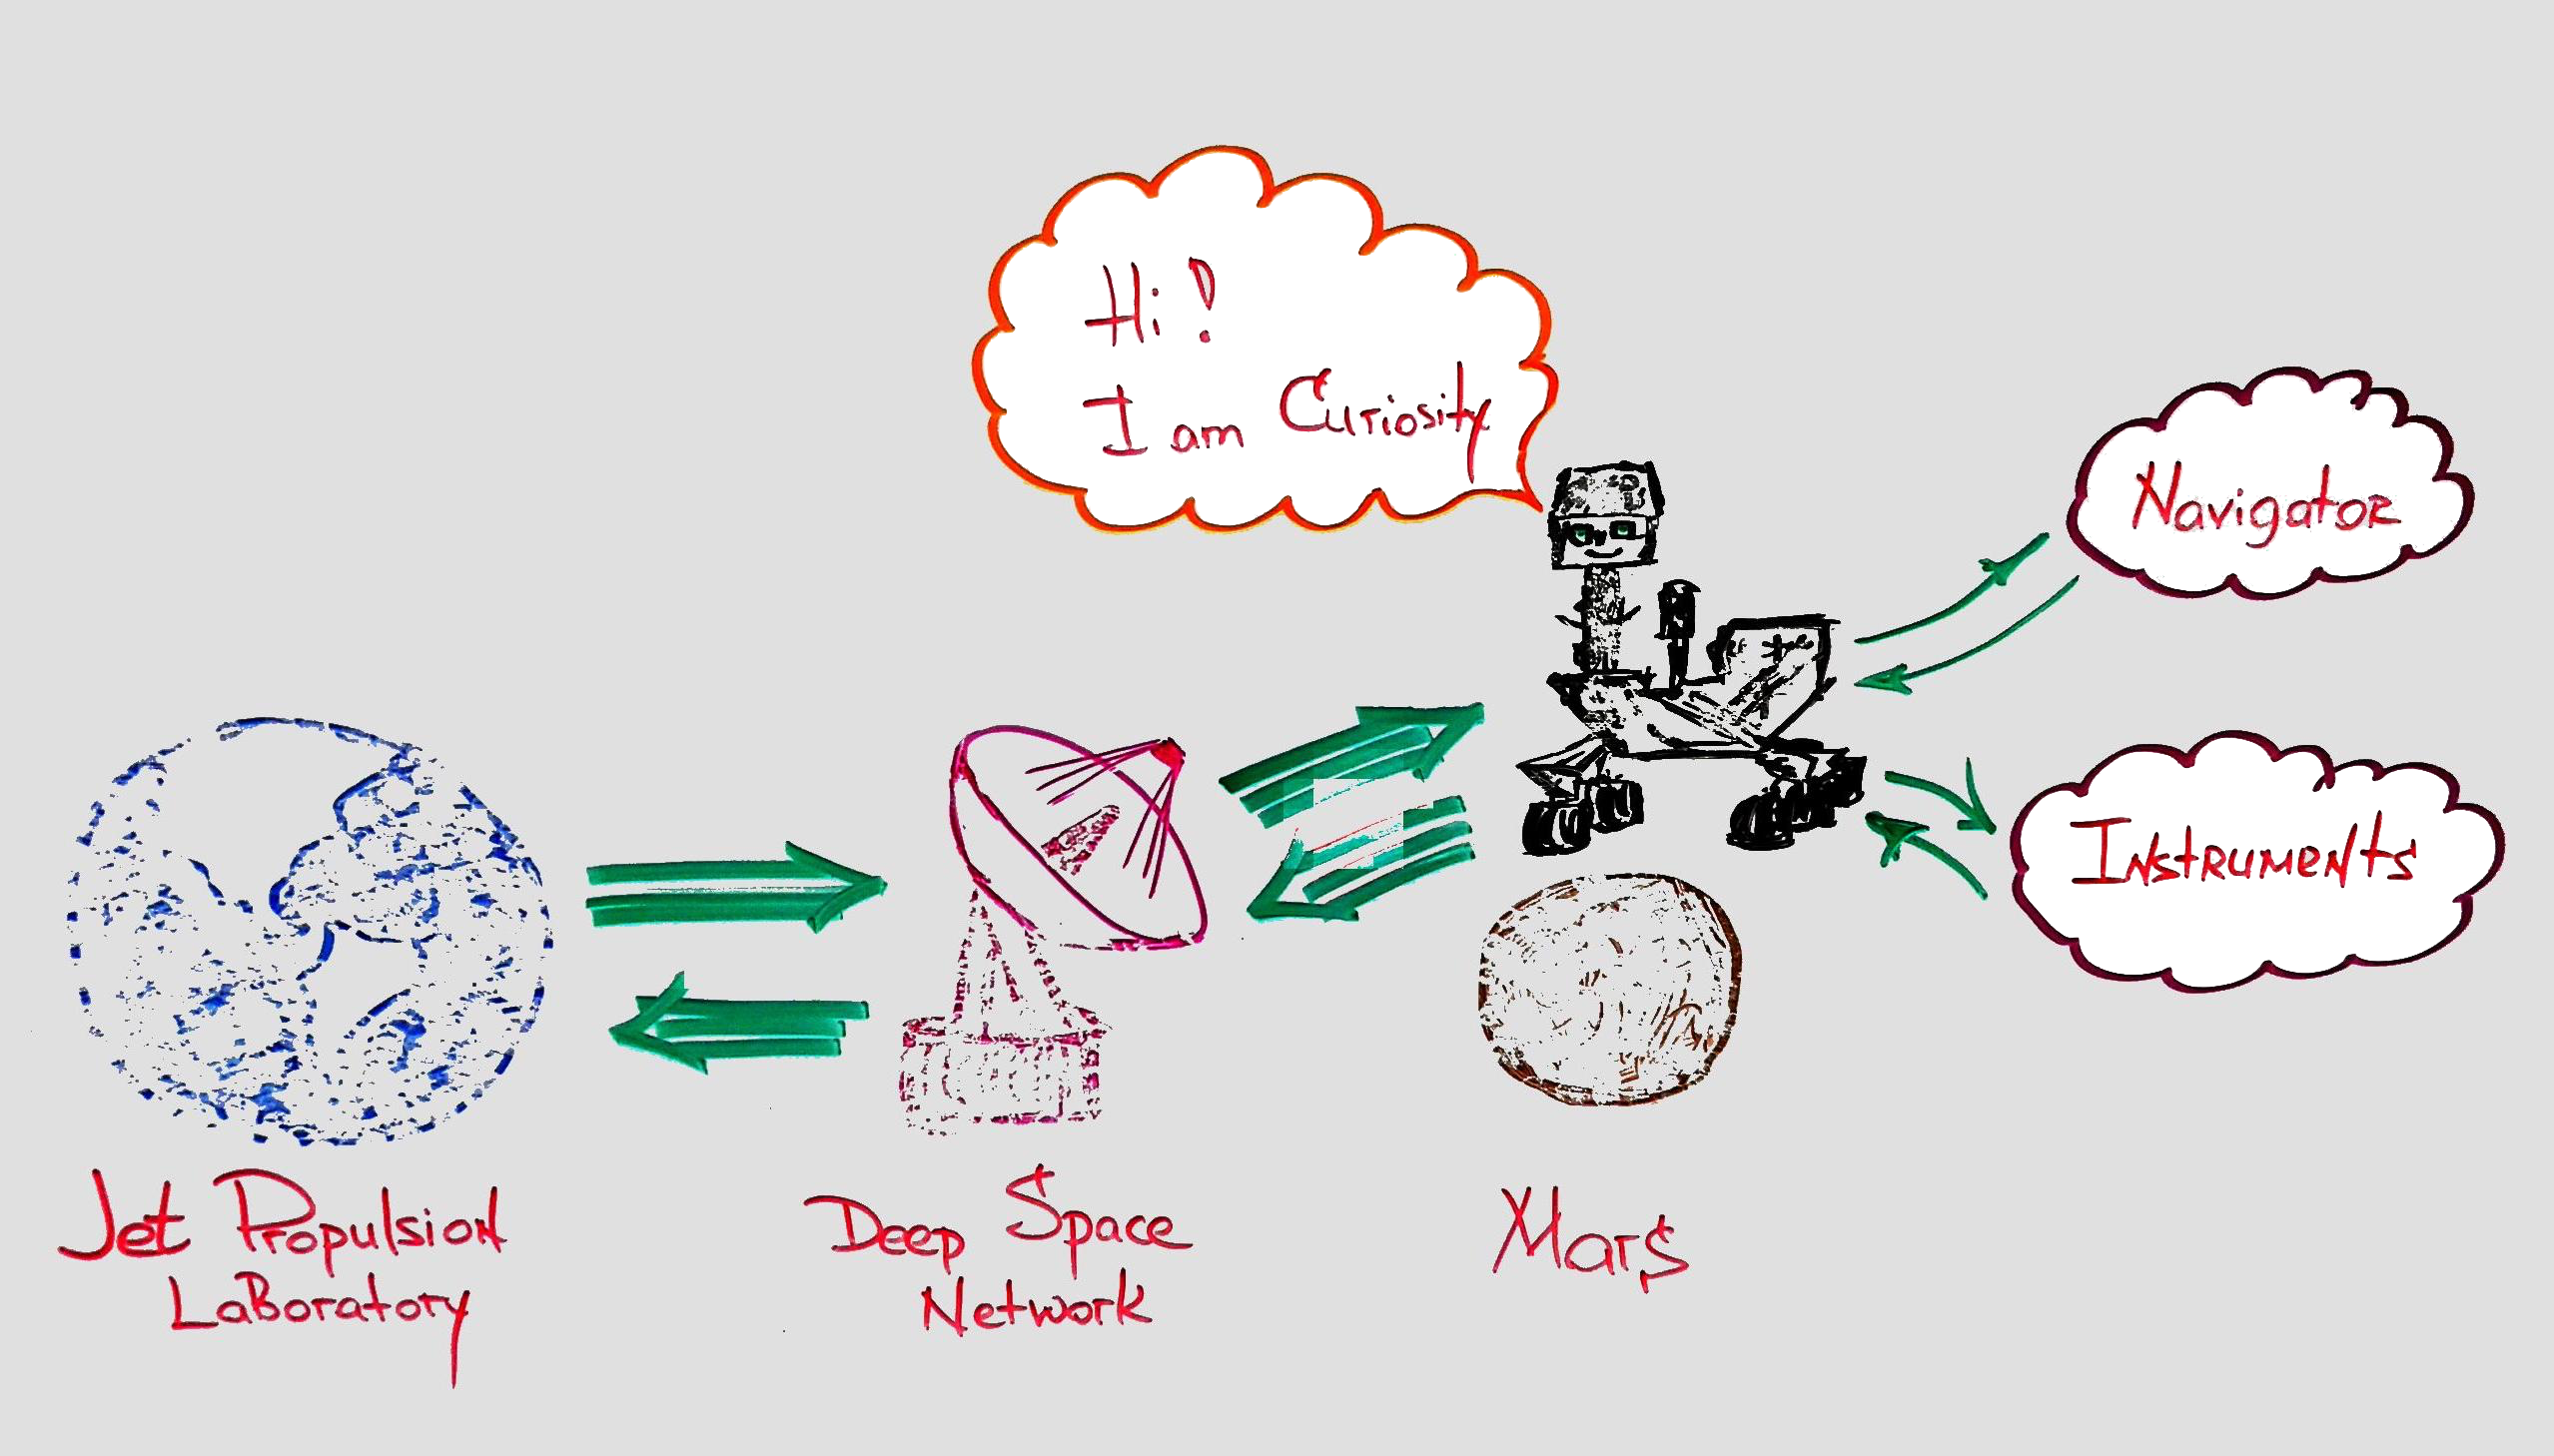 Hi!
I am Curiosity
Navigator
Instruments
Jet Propulsion
Laboratory
Deep Space
Network
Mars